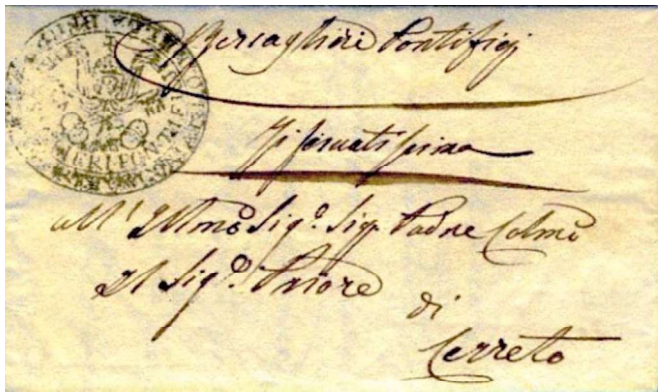 Bersaglieri Pontificj
Riservatissima
All' Illmo Sigr. Sigr. Padne Colmo
Il Sigr. Priore
di
Cerreto